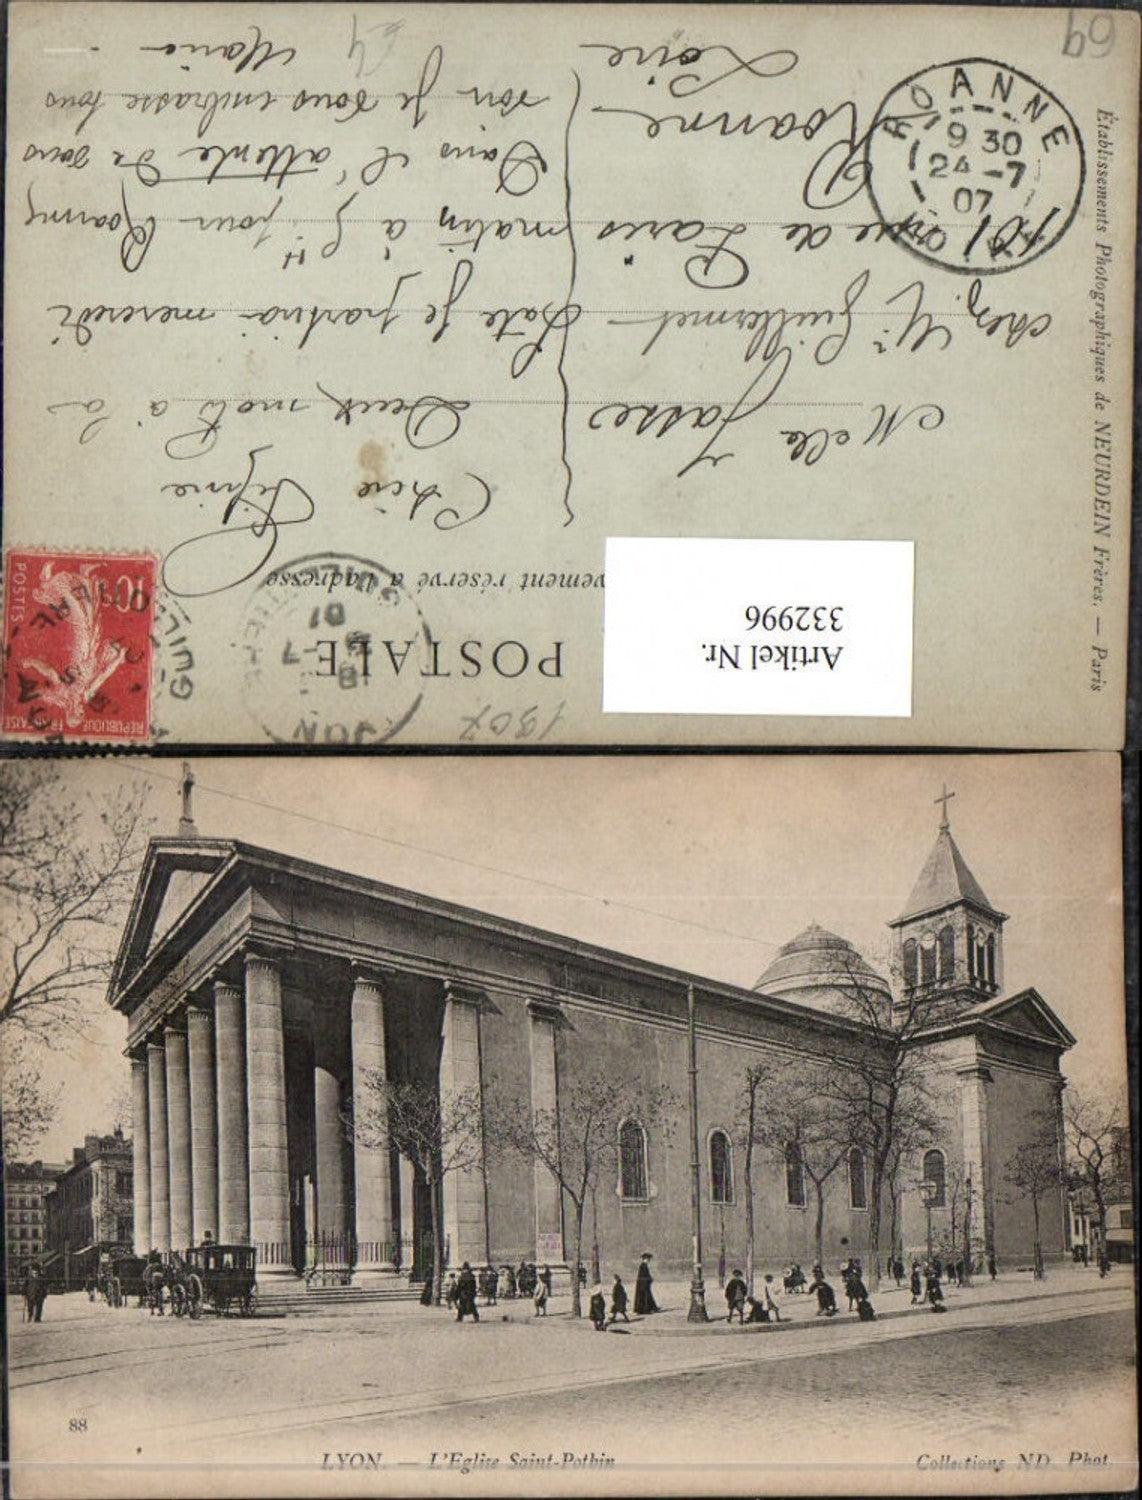 69
Établissements Photographiques de NEURDEIN Frères. — Paris
POSTALE
1907
vement réservé à l'adresse
Artikel Nr.
332996
ROANNE
9 30
24 - 7
07
10
POSTES
REPUBLIQUE FRANÇAISE
Chère
Deux mots à la
hate je partirai mercredi
matin à 9 H pour Roanne
Dans l'attente de vous
voir je vous embrasse tous
Maria
Melle Jasse
chez Mr Guillermet
101 rue de Paris
Roanne
Loire
88
LYON. — L'Eglise Saint-Pothin
Collections ND. Phot.